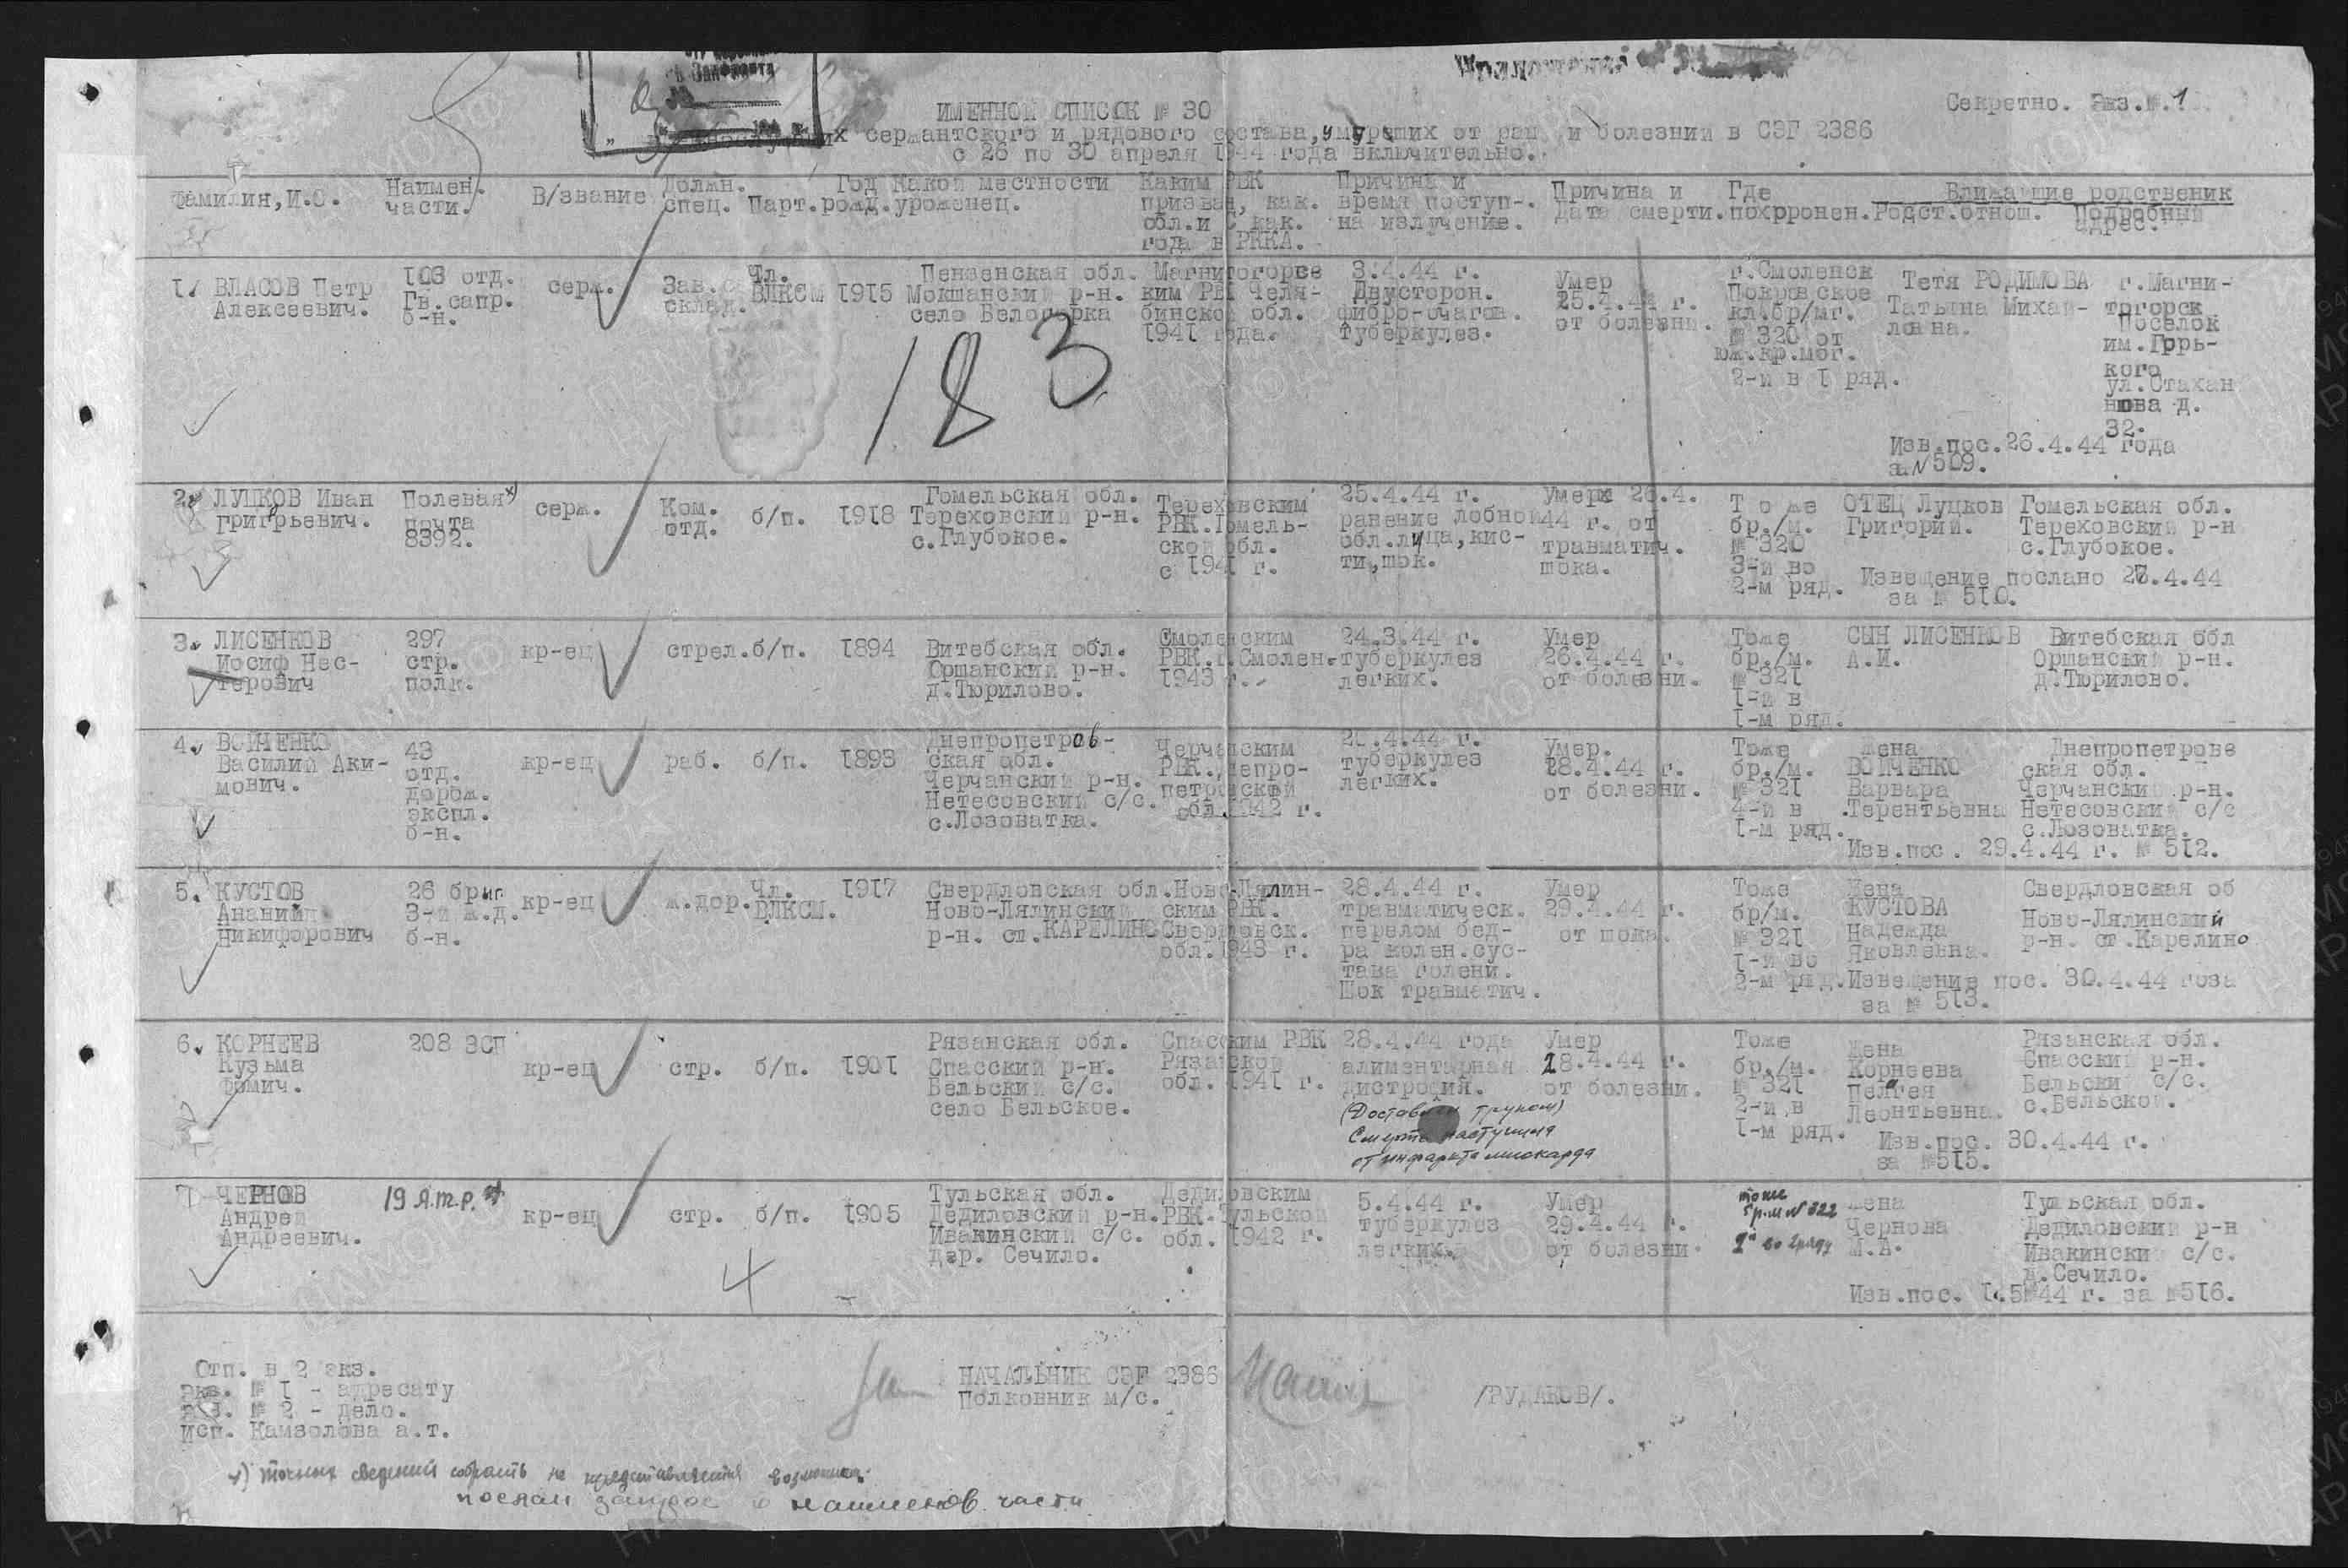 Секретно. Экз.№.1
ИМЕННОЙ СПИСОК № 30
сержантского и рядового состава, умерших от ран и болезний в СЭГ 2386
с 26 по 30 апреля 1944 года включительно.
Фамилия, И.О. Наимен. части. В/звание Должн. спец. Парт. Год рожд. Какой местности уроженец. Каким РВК призван, как. обл.и с как. года в РККА. Причина и время поступ-. на излучение. Причина и дата смерти. Где похрронен. Ближайшие родственик
Родст.отнош. Подробный адрес.
1. ВЛАСОВ Петр Алексеевич. 103 отд. Гв.сапр. б-н. серж. Зав. склад. Чл. ВЛКСМ 1915 Пензенская обл. Мокшанский р-н. село Белогорка Магнитогорсе ким РВК Челя- бинской обл. 1941 года. 3.4.44 г. Двусторон. фибро-очагов. туберкулез. Умер 25.4.44 г. от болезни. г.Смоленск Покровское кл.бр/мг. № 320 от юж.кр.мог. 2-й в 1 ряд. Тетя РОДИМОВА Татьяна Михай- ловна. г.Магни- тогорск Поселок им.Горь- кого ул.Стахан нова д. 32.
Изв.пос.26.4.44 года
за N 509.
2. ЛУЦКОВ Иван григорьевич. Полевая х) почта 8392. серж. Ком. отд. б/п. 1918 Гомельская обл. Тереховский р-н. с.Глубокое. Тереховским РВК.Гомель- ской обл. с 1941 г. 25.4.44 г. ранение лобной обл.лица,кис- ти,шок. Умер 26.4. 44 г. от травматич. шока. Т о же бр./м. № 320 3-й во 2-м ряд. ОТЕЦ Луцков Григорий. Гомельская обл. Тереховский р-н с.Глубокое.
Извещение послано 26.4.44
за № 510.
3. ЛИСЕНКОВ Иосиф Нес- терович 297 стр. полк. кр-ец стрел. б/п. 1894 Витебская обл. Оршанский р-н. д.Тюрилово. Смоленским РВК.г.Смолен. 1943 г. 24.3.44 г. туберкулез легких. Умер 26.4.44 г. от болезни. Тоже бр./м. № 321 1-й в 1-м ряд. СЫН ЛИСЕНКОВ А.И. Витебская обл Оршанский р-н. д.Тюрилово.
4. ВОЙЧЕНКО Василий Аки- мович. 43 отд. дорож. экспл. б-н. кр-ец раб. б/п. 1893 Днепропетров- ская обл. Черчанский р-н. Нетесовский с/с. с.Лозоватка. Черчанским РВК.,непро- петровской обл.1942 г. туберкулез легких. Умер. 28.4.44 г. от болезни. Тоже бр./м. № 321 4-й в 1-м ряд. Жена ВОЙЧЕНКО Варвара Терентьевна Днепропетровс ская обл. Черчанский р-н. Нетесовский с/с с.Лозоватка.
Изв.пос. 29.4.44 г. № 512.
5. КУСТОВ Ананий Никифорович 26 бриг 3-й ж.д. б-н. кр-ец ж.дор. Чл. ВЛКСМ. 1917 Свердловская обл. Ново-Лялинский р-н. ст.КАРЕЛИНО Ново-Лялин- ским РВК. Свердловск. обл.1943 г. 28.4.44 г. травматическ. перелом бед- ра колен.сус- тава голени. Шок травматич. Умер 29.4.44 г. от шока. Тоже бр/м. № 321 1-й во 2-м ряд. Жена КУСТОВА Надежда Яковлевна. Свердловская об Ново-Лялинский р-н. ст.Карелино
Извещение пос. 30.4.44 гоза
за № 513.
6. КОРНЕЕВ Кузьма Фомич. 208 ЗСП кр-ец стр. б/п. 1901 Рязанская обл. Спасский р-н. Бельский с/с. село Бельское. Спасским РВК Рязанской обл. 1941 г. 28.4.44 года алиментарная дистрофия. (Доставлен трупом) Смерть наступила от инфаркта миокарда Умер 28.4.44 г. от болезни. Тоже бр./м. № 321 2-й в 1-м ряд. Жена Корнеева Пелагея Леонтьевна. Рязанская обл. Спасский р-н. Бельский с/с. с.Бельской.
Изв.пос. 30.4.44 г.
за №515.
7. ЧЕРНОВ Андрей Андреевич. кр-ец стр. б/п. 1905 Тульская обл. Дедиловский р-н. Ивакинский с/с. дер. Сечило. Дедиловским РВК.Тульской обл. 1942 г. 5.4.44 г. туберкулез легких. Умер 29.4.44 г. от болезни. тоже бр.м N 322 Жена Чернова М.А. Тульская обл. Дедиловский р-н Ивакинский с/с. д.Сечило.
Изв.пос. 1.5.44 г. за №516.
183
4
Отп. в 2 экз.
экз. № 1 - адресату
экз. № 2 - дело.
исп. Камзолова а.т.
НАЧАЛЬНИК СЭГ 2386
Полковник м/с. /РУДАКОВ/.
х) точных сведений собрать не представляется возможным.
послан запрос о наименов. части